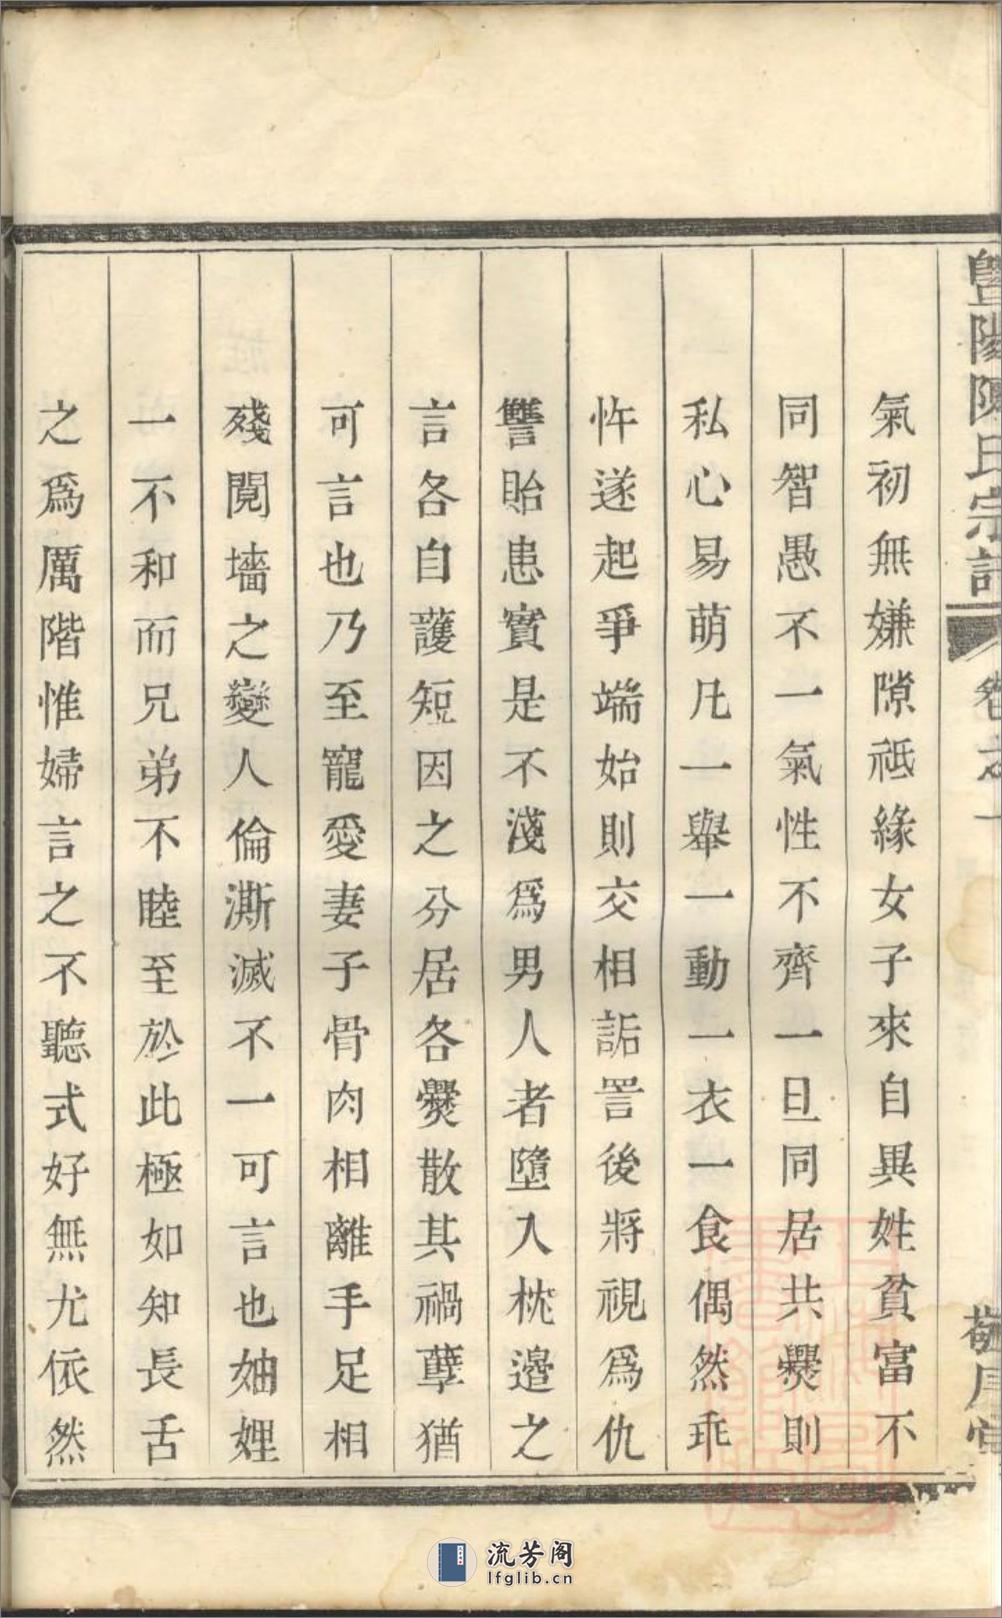 暨陽陳氏宗譜
卷之一
氣初無嫌隙祇緣女子來自異姓貧富不
同智愚不一氣性不齊一旦同居共爨則
私心易萌凡一舉一動一衣一食偶然乖
忤遂起爭端始則交相詬詈後將視爲仇
讐貽患實是不淺爲男人者墮入枕邊之
言各自護短因之分居各爨散其禍孽猶
可言也乃至寵愛妻子骨肉相離手足相
殘䦧墻之變人倫澌滅不一可言也妯娌
一不和而兄弟不睦至於此極如知長舌
之爲厲階惟婦言之不聽式好無尤依然
流芳阁
lfglib.cn